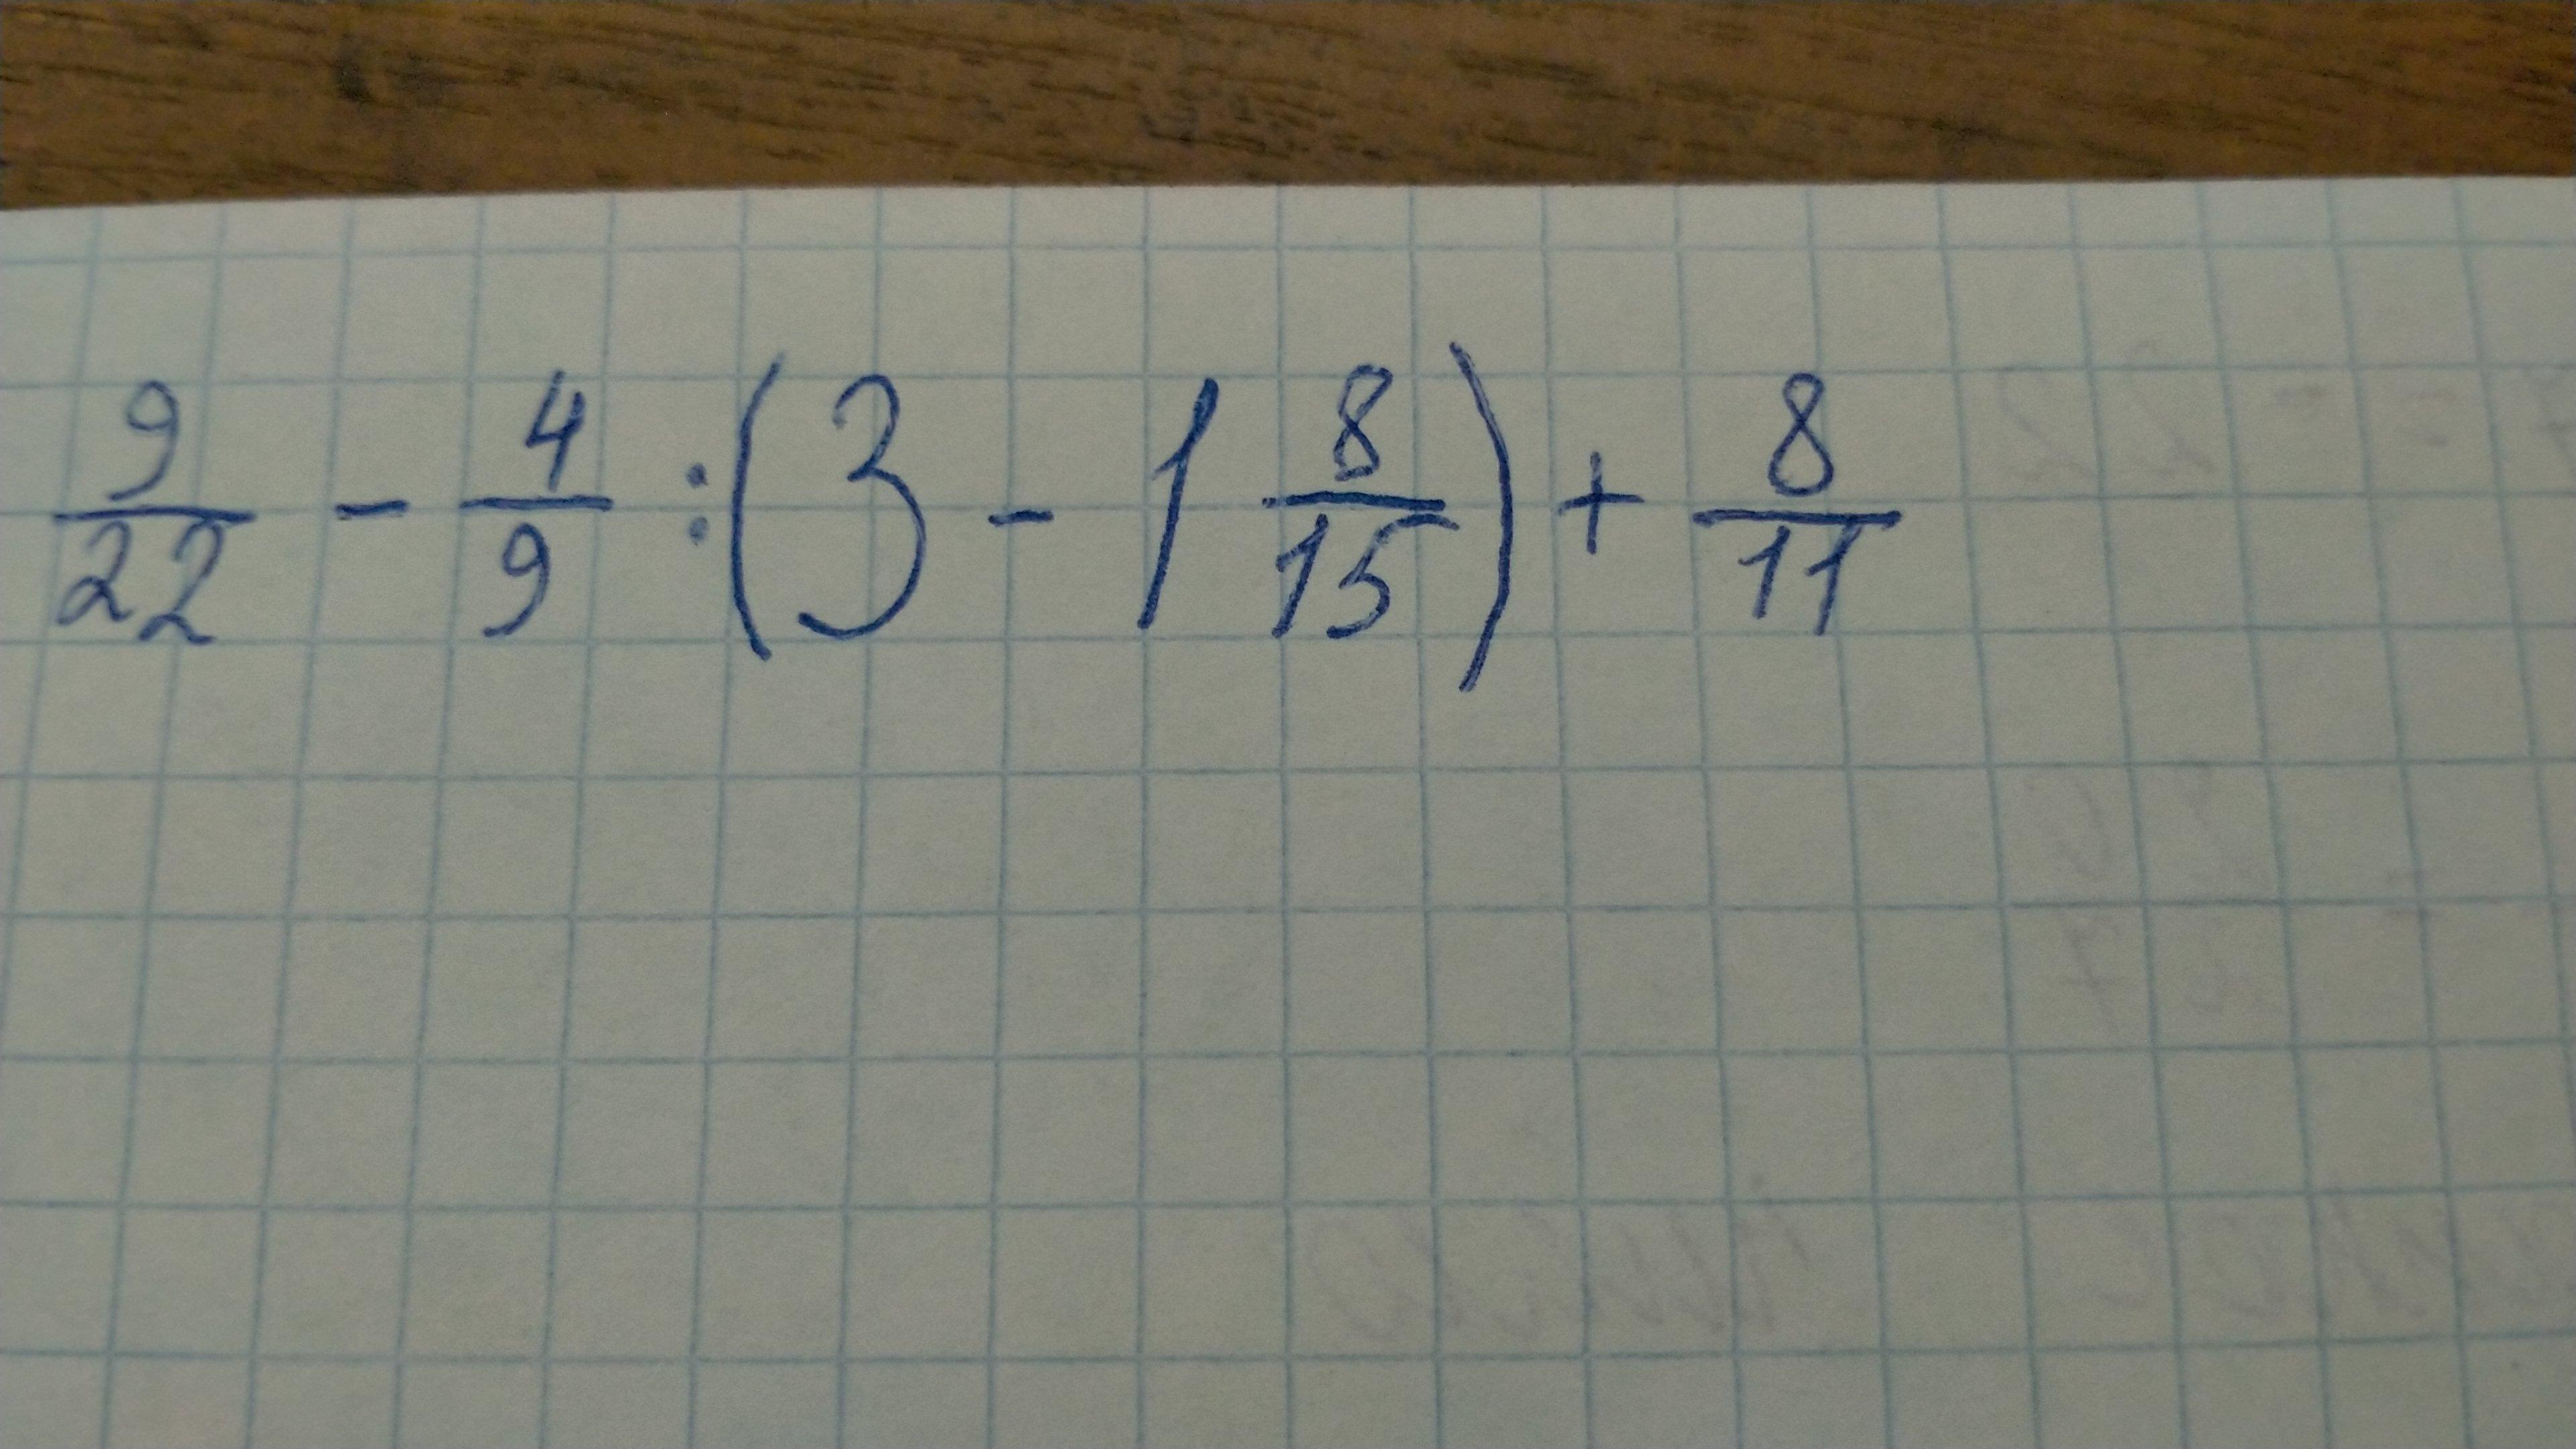 9/22 - 4/9 : (3 - 1 8/15) + 8/11